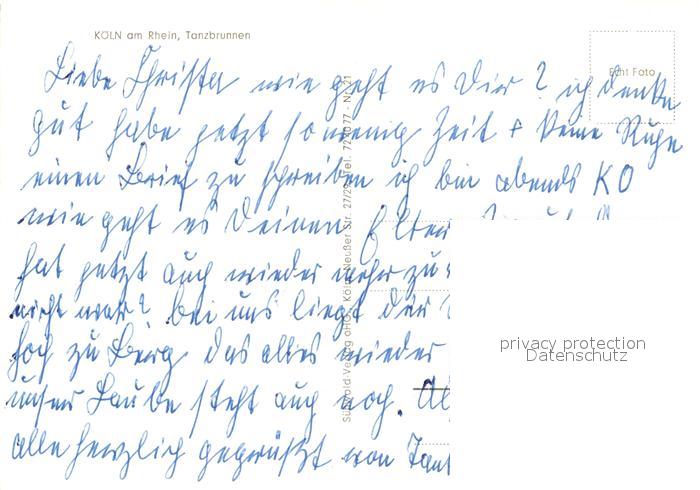 KÖLN am Rhein, Tanzbrunnen
Echt Foto
Liebe Christa wie geht es Dir? ich denke
gut habe jetzt so wenig Zeit + keine Ruhe
einen Brief zu schreiben ich bin abends KO
wie geht es Deinen Eltern
hat jetzt auch wieder mehr zu
nicht war? bei uns liegt der
hoch zu Berg das alles wieder
unser Laube steht auch noch.
alle herzlich gegrüßt von
privacy protection
Datenschutz